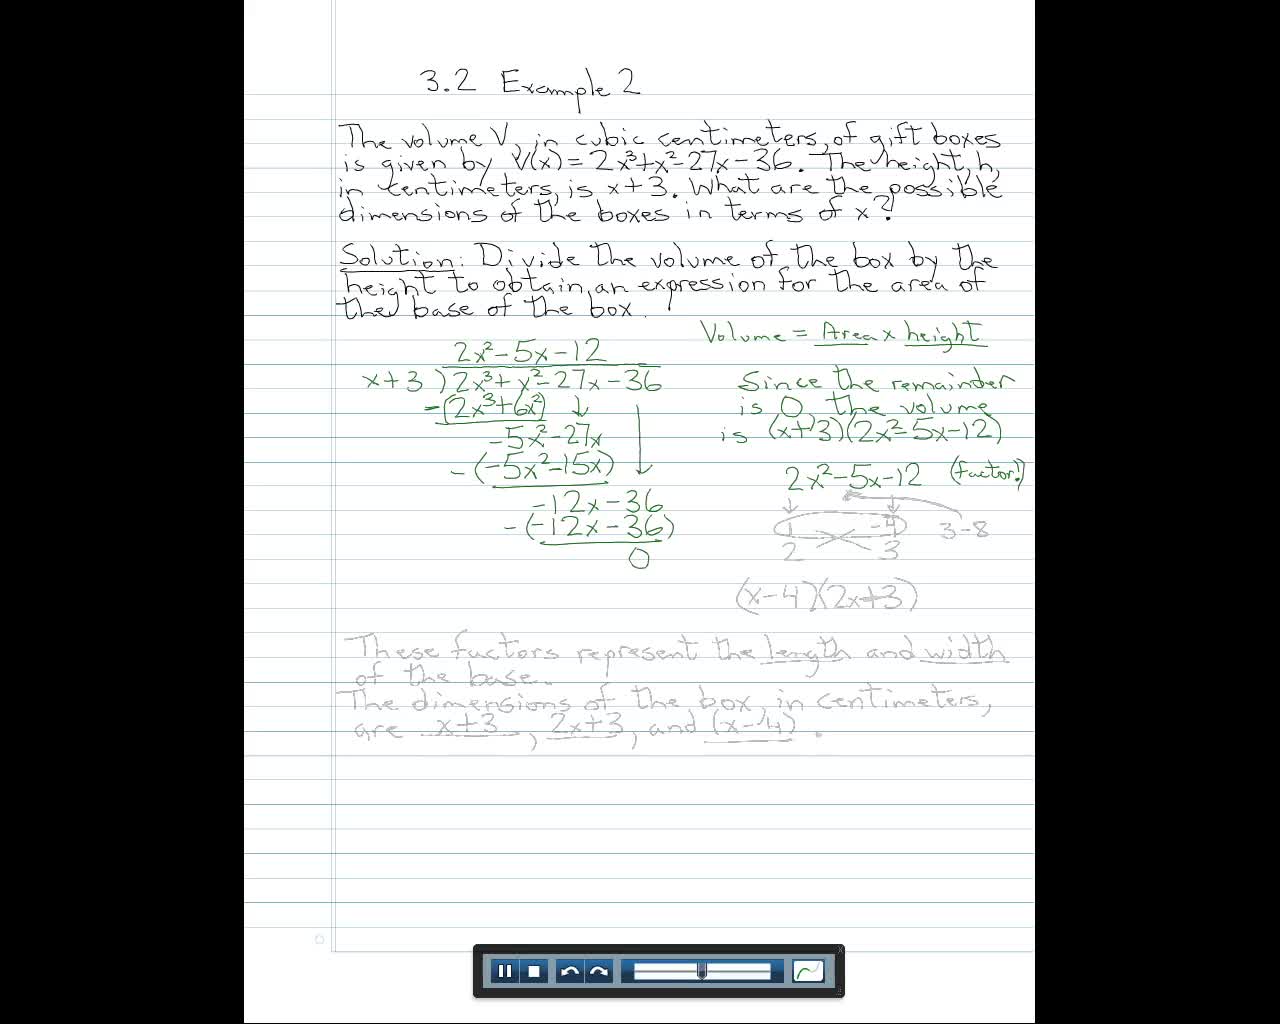 3.2 Example 2
The volume V, in cubic centimeters, of gift boxes
is given by V(x) = 2x³+x²-27x-36. The height, h,
in centimeters, is x+3. What are the possible
dimensions of the boxes in terms of x?
Solution: Divide the volume of the box by the
height to obtain an expression for the area of
the base of the box.
Volume = Area x height
2x²-5x-12
x+3 ) 2x³+x²-27x-36
-(2x³+6x²)
-5x²-27x
-(-5x²-15x)
-12x-36
-(-12x-36)
0
Since the remainder
is 0, the volume
is (x+3)(2x²-5x-12)
2x²-5x-12 (factor!)
1 -4 3-8
2 3
(x-4)(2x+3)
These factors represent the length and width
of the base.
The dimensions of the box, in centimeters,
are x+3, 2x+3, and (x-4).